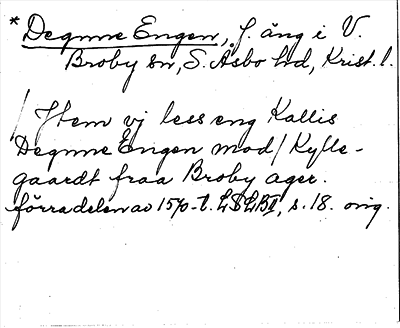 * Degnne Engen, f. äng i V.
Broby sn, S. Åsbo hd, Krist. l.
/ Item vj less eng Kallis
Degnne Engen mod / Kylle-
gaardt fraa Broby ager.
förra delen av 1570-t. s. 18. orig.